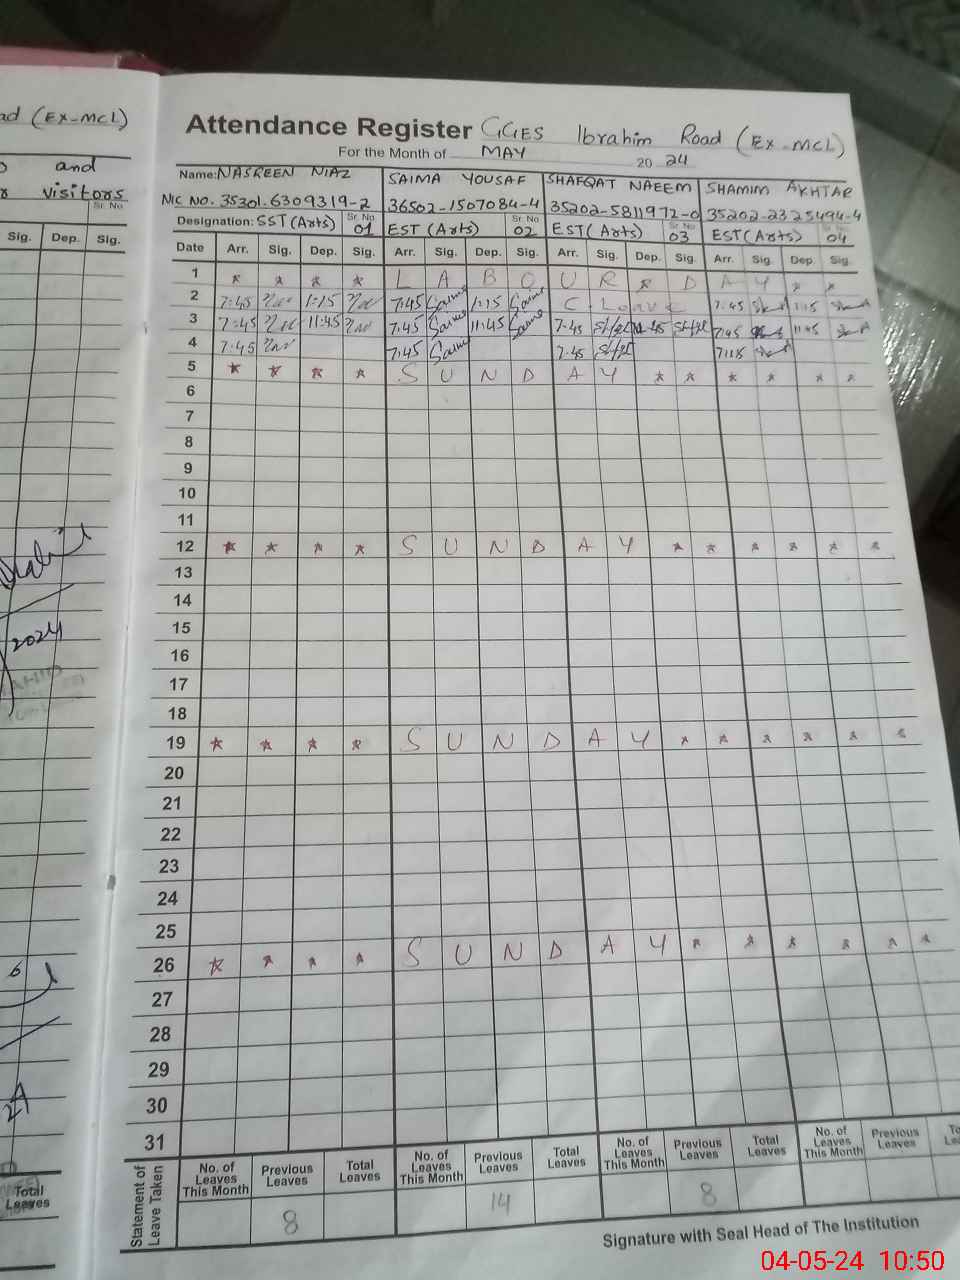 ad (EX-MCL)
and
visitors
Sr. No
Sig. Dep. Sig.
2024
6
Total
Leaves
Attendance Register GGES Ibrahim Road (EX-MCL)
For the Month of MAY 20 24
Name: NASREEN NIAZ SAIMA YOUSAF SHAFQAT NAEEM SHAMIM AKHTAR
NIC NO. 35301-6309319-2 36502-1507084-4 35202-5811972-0 35202-2325494-4
Designation: SST (Arts) Sr. No 01 EST (Arts) Sr. No 02 EST (Arts) Sr. No 03 EST (Arts) Sr. No 04
Date Arr. Sig. Dep. Sig. Arr. Sig. Dep. Sig. Arr. Sig. Dep. Sig. Arr. Sig. Dep. Sig.
1 * * * * L A B O U R * D A Y * *
2 7:45 1:15 7:45 Saima 1:15 Saima C. Leave 7:45 1:15
3 7:45 11:45 7:45 Saima 11:45 Saima 7:45 7:45 11:45
4 7:45 7:45 Saima 7:45
5 * * * * S U N D A Y * * * * * *
6
7
8
9
10
11
12 * * * * S U N D A Y * * * * * *
13
14
15
16
17
18
19 * * * * S U N D A Y * * * * * *
20
21
22
23
24
25
26 * * * * S U N D A Y * * * * * *
27
28
29
30
31
Statement of Leave Taken
No. of Leaves This Month Previous Leaves Total Leaves No. of Leaves This Month Previous Leaves Total Leaves No. of Leaves This Month Previous Leaves Total Leaves No. of Leaves This Month Previous Leaves
8 14 8
Signature with Seal Head of The Institution
04-05-24 10:50